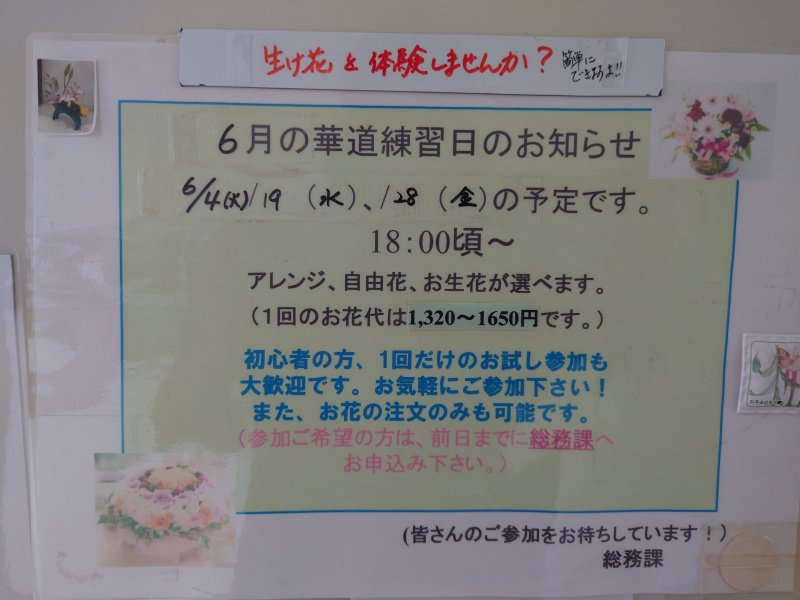 生け花を体験しませんか？
簡単に
できますよ!!
6月の華道練習日のお知らせ
6/4(火)/19（水）、/28（金）の予定です。
18:00頃～
アレンジ、自由花、お生花が選べます。
（1回のお花代は1,320～1650円です。）
初心者の方、1回だけのお試し参加も
大歓迎です。お気軽にご参加下さい！
また、お花の注文のみも可能です。
（参加ご希望の方は、前日までに総務課へ
お申込み下さい。）
(皆さんのご参加をお待ちしています！）
総務課